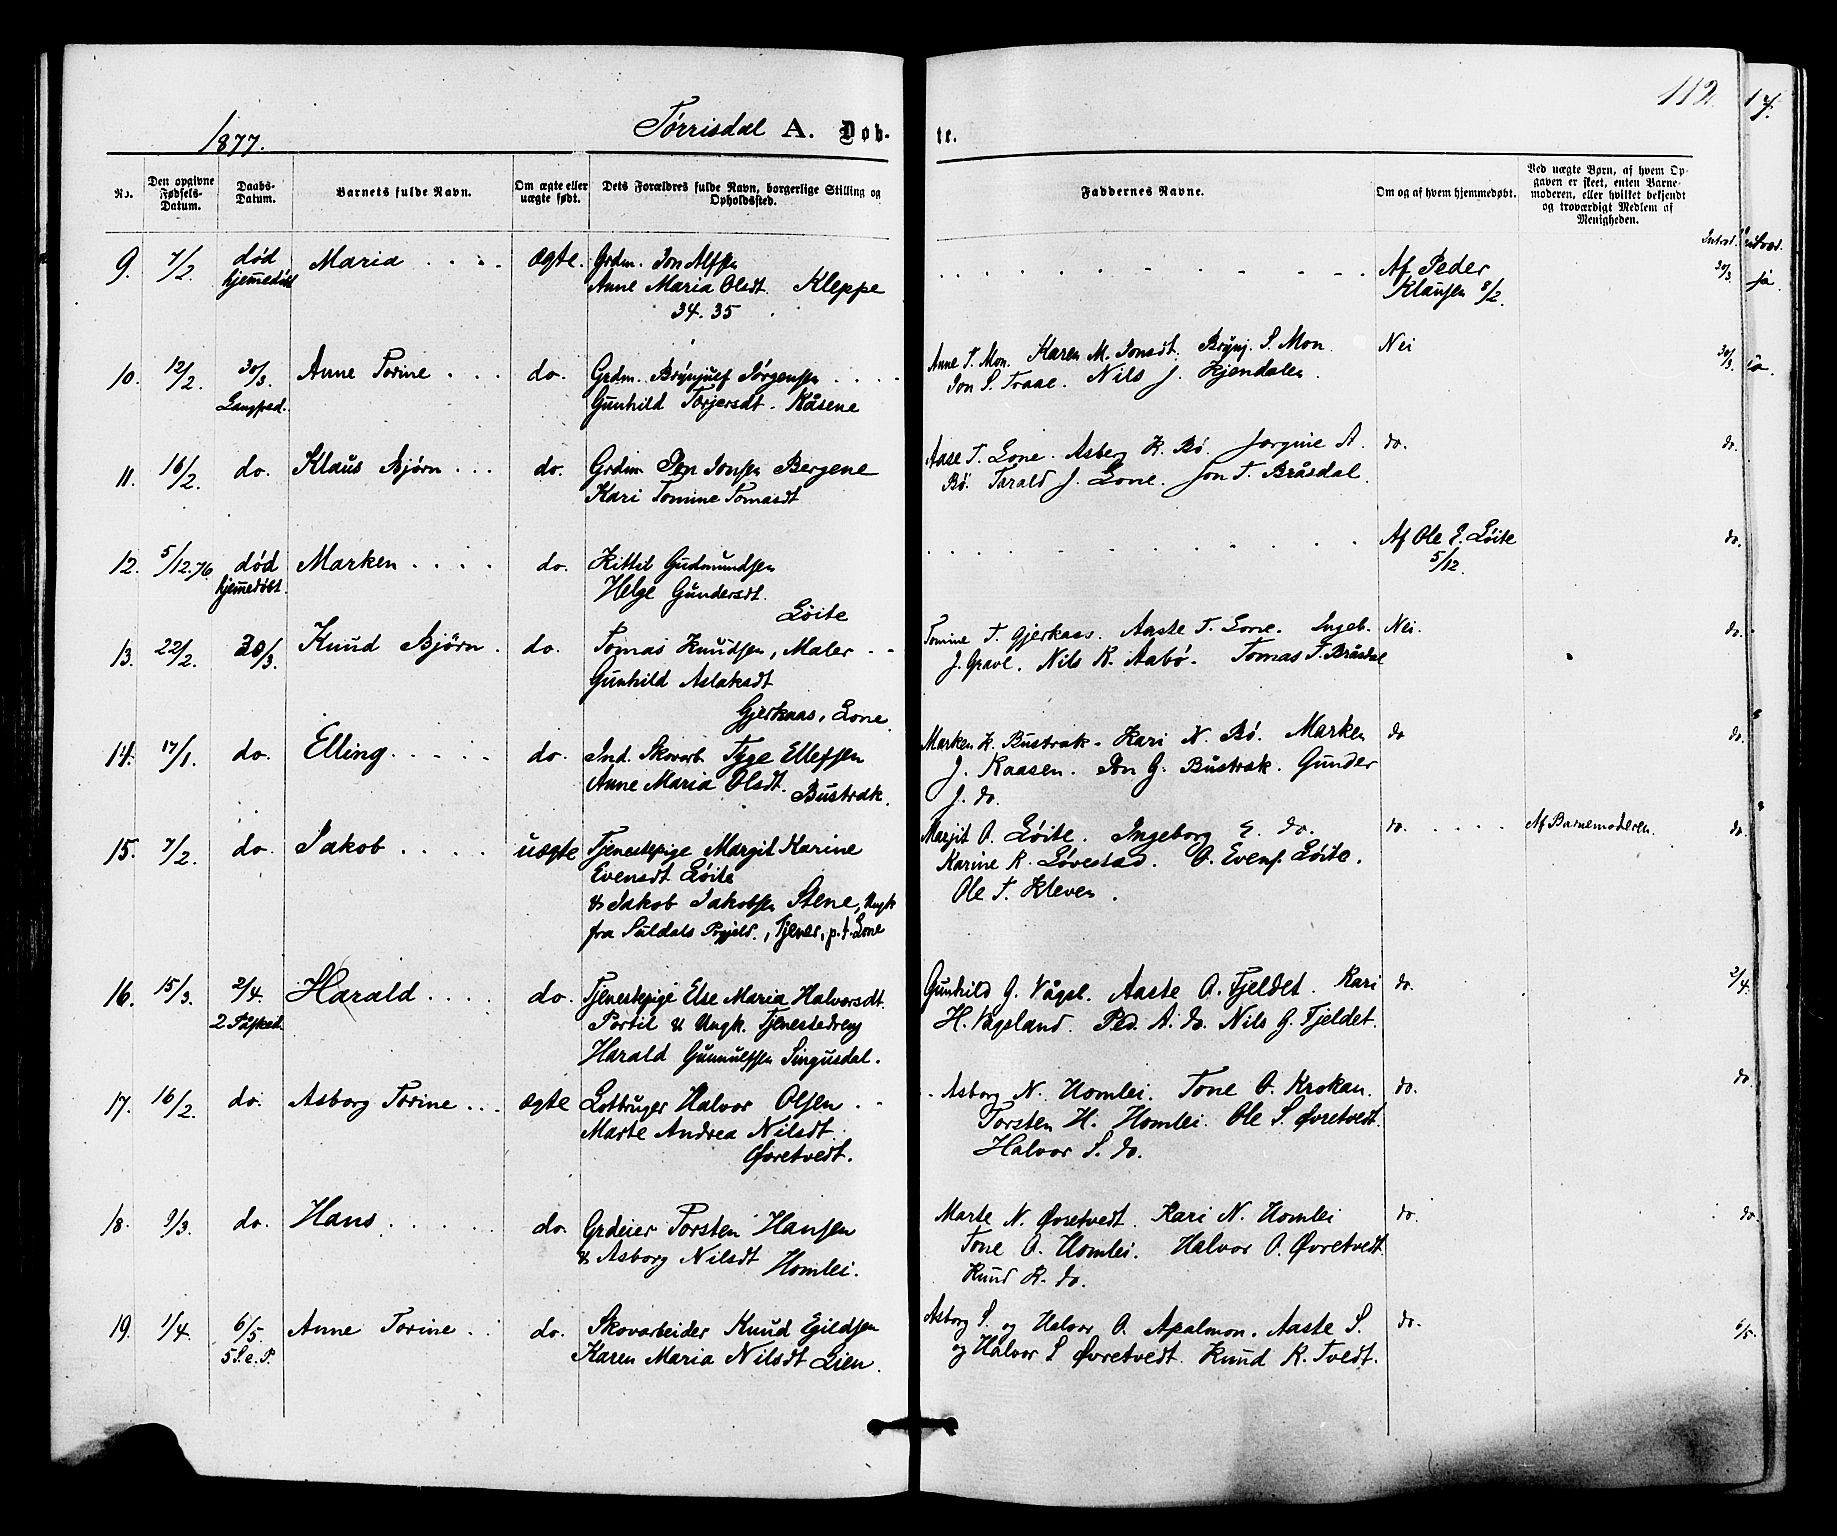 112.
17.
1877.
Tørrisdal A. Døb-
te.
No.
Den opgivne Fødsels-Datum.
Daabs-Datum.
Barnets fulde Navn.
Om ægte eller uægte født.
Dets Forældres fulde Navn, borgerlige Stilling og Opholdssted.
Faddernes Navne.
Om og af hvem hjemmedøbt.
Ved uægte Børn, af hvem Opgaven er skeet, enten Barnemoderen, eller hvilket bekjendt og troværdigt Medlem af Menigheden.
Introd.
9. 7/2 død Maria . . . . ægte. Grdm. Jon Alfsen . . . . . . . . Af Peder 30/3
hjemedøbt Anne Maria Olsdt. Kleppe Klausen 8/2.
34. 35
10. 12/2. 30/3. Anne Torine . . . do. Grdm. Brynjulf Jørgensen . . . . Anne T. Mon. Karen M. Jonsdt. Brynj. S. Mon Nei 30/3
Langfred. Gunhild Torjersdt. Kåsene Jon S. Traae. Nils J. Kjendalen
11. 16/2. do. Klaus Bjørn . . . do. Grdm Jon Jonsen Bergene Aase T. Lone. Asberg K. Bø. Jorgine A. do. do.
Kari Tomine Tomasdt Bø. Tarald J. Lone. Jon T. Bråsdal.
12. 5/12.76 død Marken . . . . do. Kittil Gudmundsen . . . . . . . . Af Ole E. Löite do.
hjemedøbt. Helge Gundersdt. 5/12.
Löite
13. 22/2. 30/3. Knud Bjørn . do. Tomas Knudsen, Maler - - Tomine T. Gjerkaas. Aaste T. Lone. Ingeb. Nei. do.
Gunhild Aslaksdt J. Gravl. Nils K. Aabø. Tomas T. Bråsdal
Gjerkaas, Lone.
14. 17/1. do. Elling . . . . . do. Ind. Skovarb. Tyge Ellefsen Marken K. Bustrak. Kari N. Bø. Marken do do.
Anne Maria Olsdt. Bustrak. J. Kaasen. Jon G. Bustrak. Gunder
J. do.
15. 7/2. do. Jakob . . . . uægte Tjenestepige Margit Karine Margit O. Löite. Ingeborg E. do. do. . . . . Af Barnemoderen. do.
Evensdt Löite Karine K. Lövestad. O. Evens. Löite.
& Jakob Jakobsen Stene, Ungk Ole T. Kleven.
fra Suldals Prgjeld., Tjener, p. t. Lone
16. 15/3. 2/4. Harald . . . . do. Tjenestepige Else Maria Halvorsdt. Gunhild G. Vågsl. Aaste O. Fjeldet. Kari do. 2/4.
2 Påsked. Portil & Ungk. Tjenestedreng H. Vågsland. Ped. A. do. Nils G. Fjeldet.
Harald Gunnulfsen Singusdal.
17. 16/2 do. Asborg Torine . . . ægte Lotbruger Halvor Olsen . - Asborg N. Homlei. Tone O. Krokan. do. do.
Marte Andrea Nilsdt. Torsten H. Homlei. Ole S. Øvretvedt.
Øvretvedt. Halvor S. do.
18. 9/3. do. Hans . . . . . . do. Grdeier Torsten Hansen Marte N. Øvretvedt. Kari N. Homlei do. do.
& Asborg Nilsdt Homlei. Tone O. Homlei. Halvor O. Øvretvedt
Knud K. do.
19. 1/4. 6/5. Anne Torine . . do. Skovarbeider Knud Egildsen Asborg S. og Halvor O. Apalmon. Aaste S. do. 6/5.
5 S. e. P. Karen Maria Nilsdt Lien. og Halvor S Øvretvedt. Knud K. Tvedt.